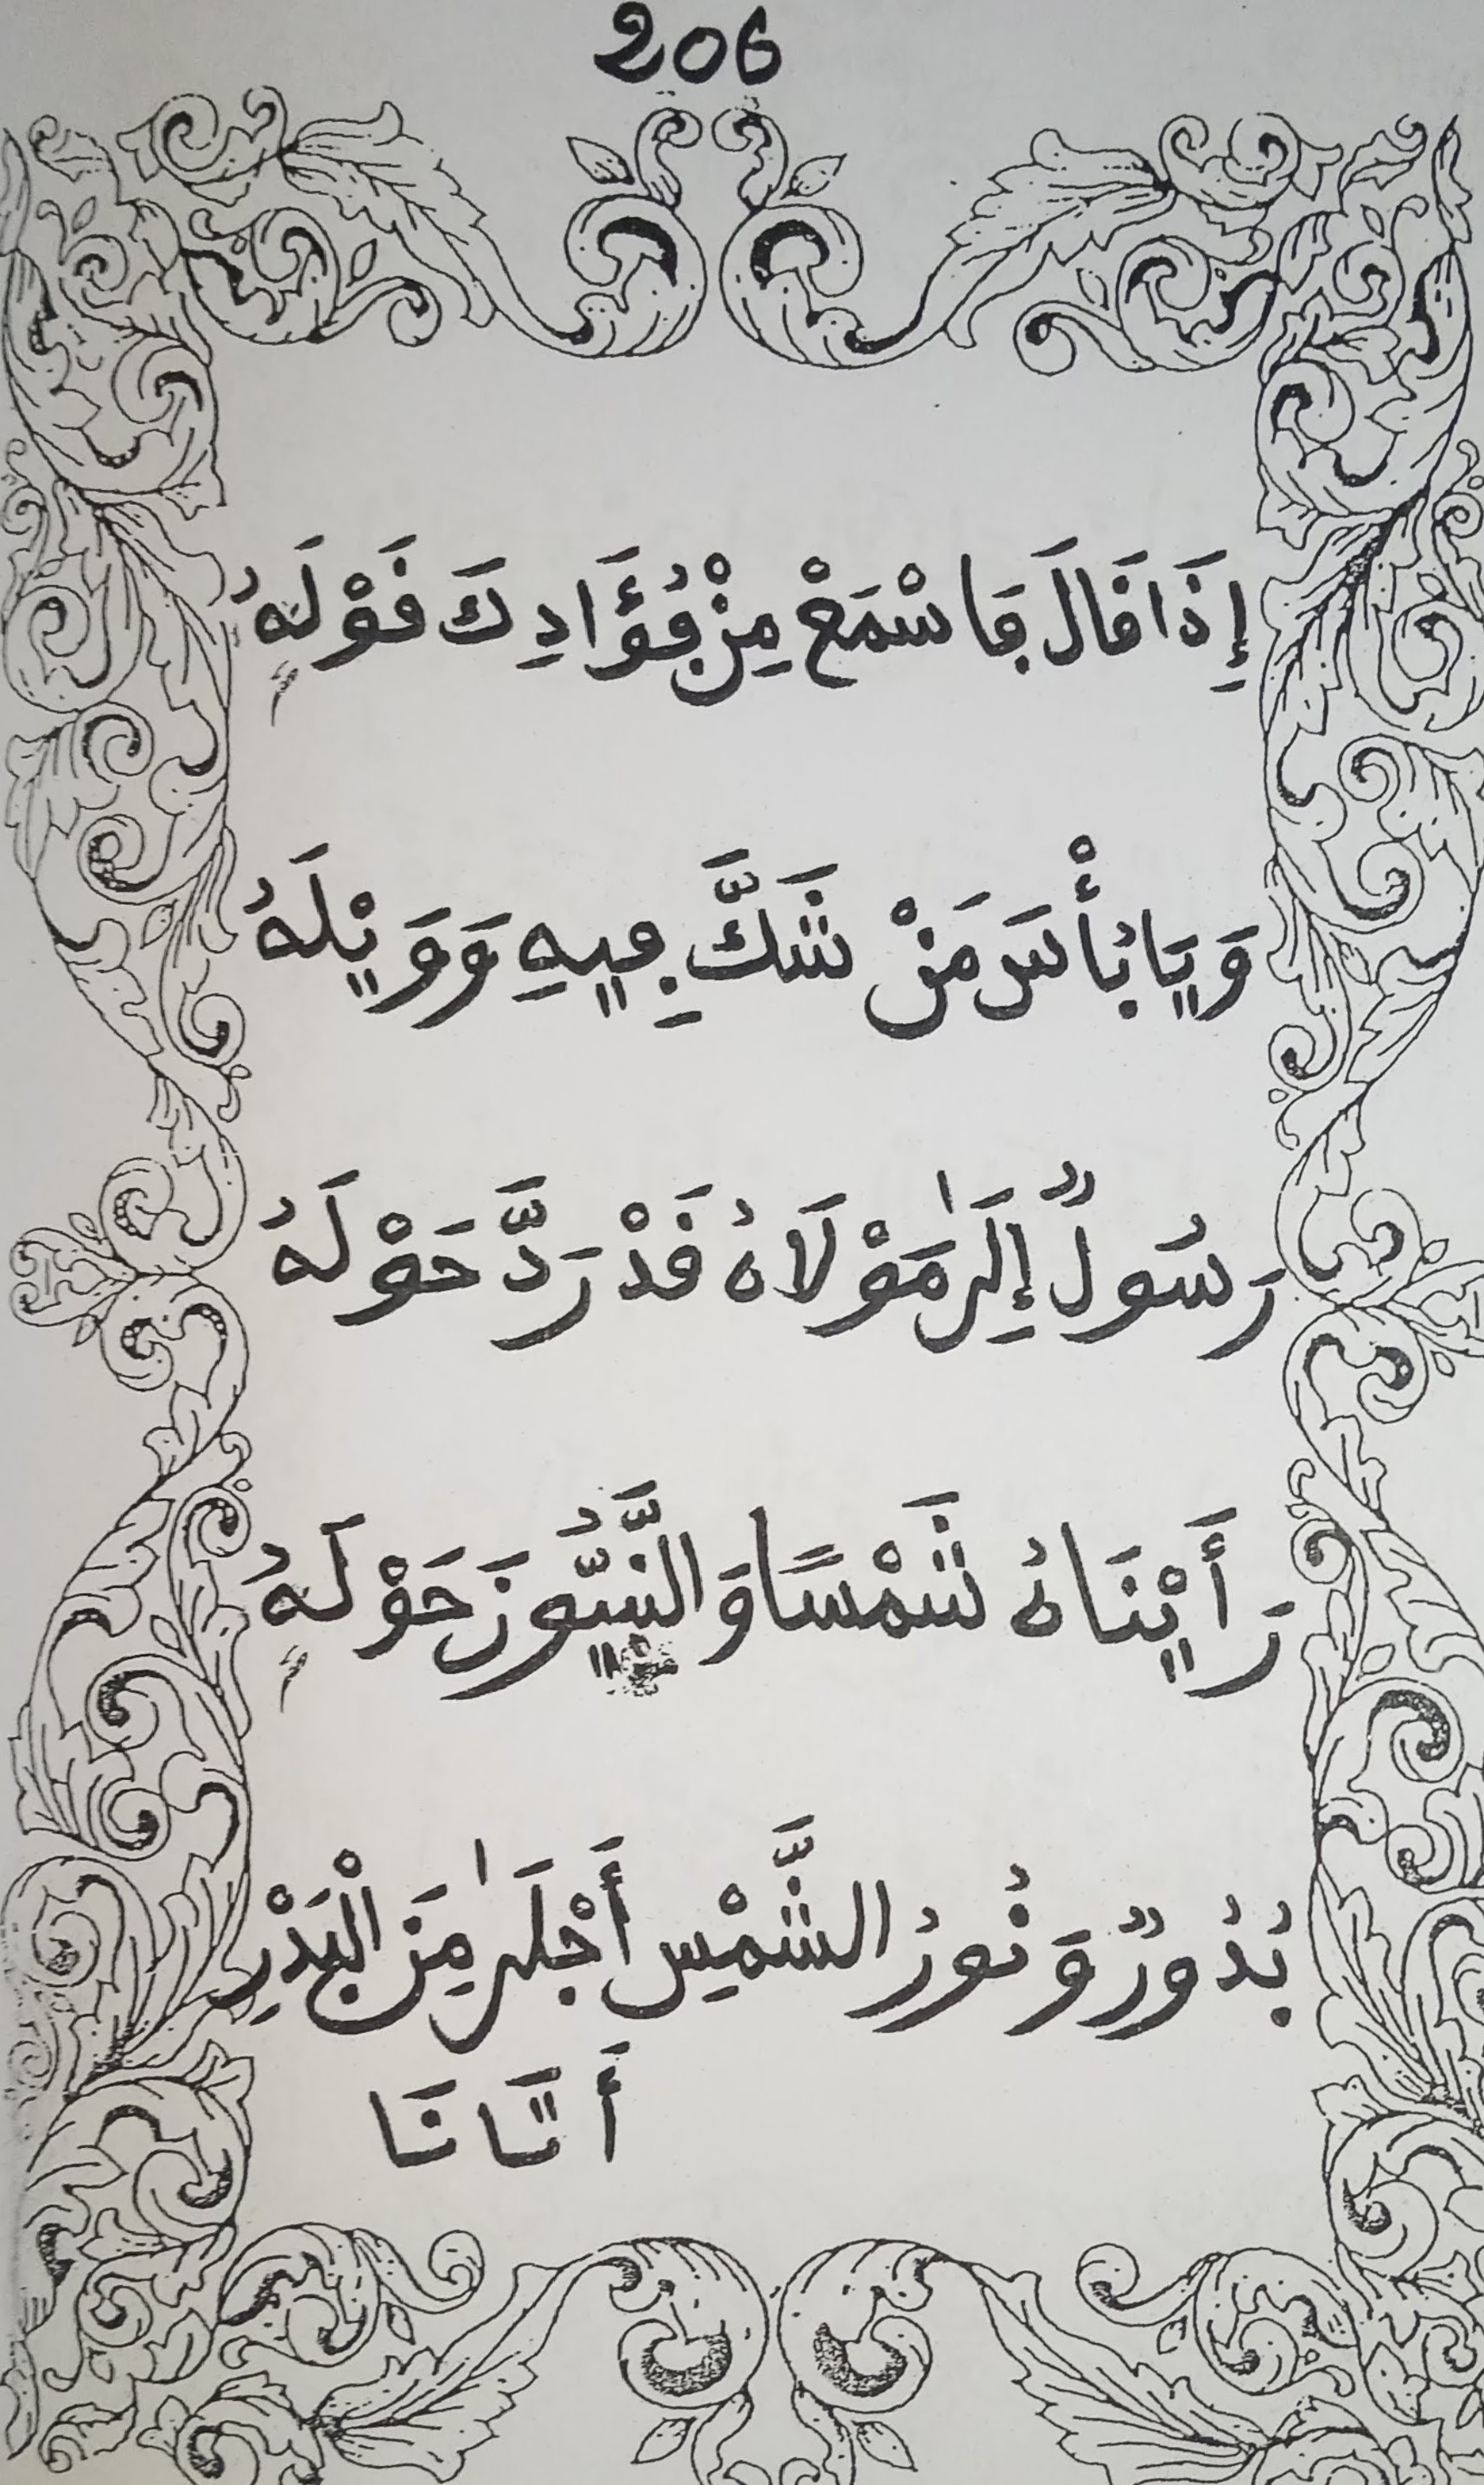 206
إِذَا قَالَ فَاسْمَعْ مِنْ فُؤَادِكَ قَوْلَهُ
وَيَا بُأْسَ مَنْ شَكَّ فِيهِ وَوَيْلَهُ
رَسُولٌ إِلَىٰ مَوْلَاهُ قَدْ رَدَّ حَوْلَهُ
رَأَيْنَاهُ شَمْسًا وَالنَّبِيُّونَ حَوْلَهُ
بُدُورٌ وَنُورُ الشَّمْسِ أَجْلَىٰ مِنَ الْبَدْرِ
أَتَانَا